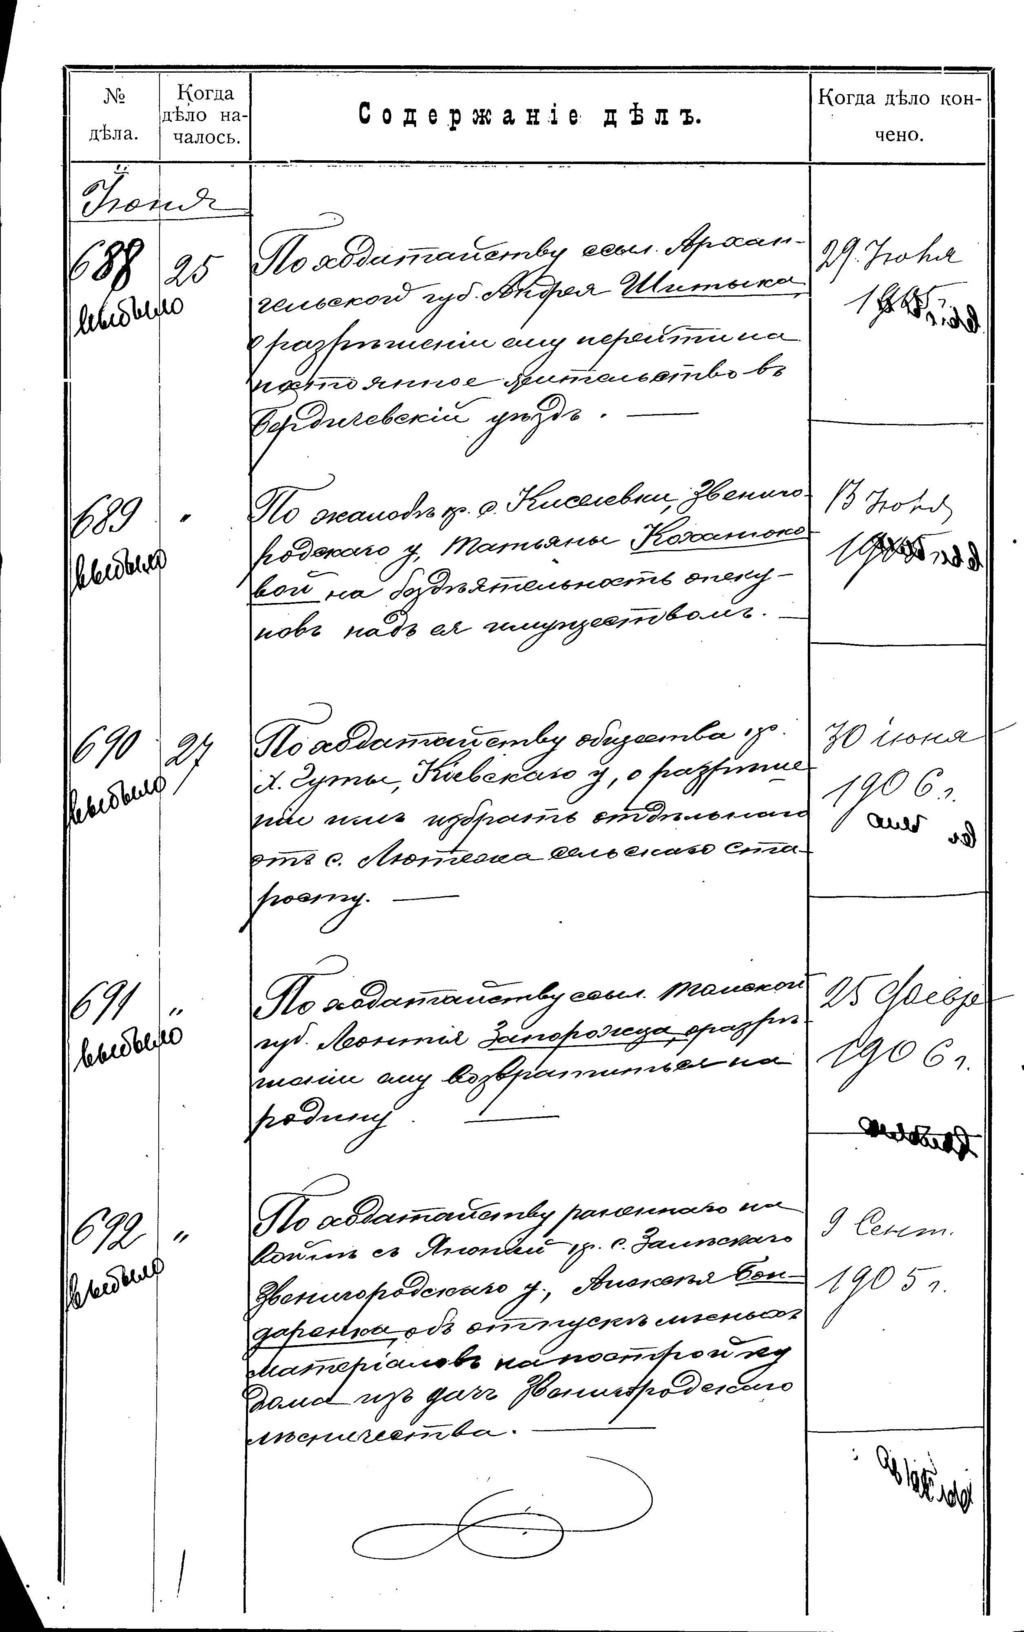 № дѣла.
Когда дѣло на-
чалось.
Содержаніе дѣлъ.
Когда дѣло кон-
чено.
Іюня
688 25
выбыло
По ходатайству ссыл. Архан-
гельской губ. Андрея Шитыка,
о разрѣшеніи ему перейти на
постоянное жительство въ
Бердичевскій уѣздъ. —
29 Іюня
689 "
выбыло
По жалобѣ кр. с. Киселевки, Звениго-
родскаго у, Татьяны Коханюко
вой на бездѣятельность опеку-
новъ надъ ея имуществомъ. —
690 27
выбыло
По ходатайству общества кр.
х. Гуты, Кіевскаго у, о разрѣше
ніи имъ избрать отдѣльнаго
отъ с. Лютежа сельскаго ста-
росту. —
30 іюня
1906 г.
691 "
выбыло
По ходатайству ссыл. Томской
губ. Леонтія Запорожца, о разрѣ-
шеніи ему возвратиться на
родину. —
25 Февр
1906 г.
692 "
выбыло
По ходатайству раненнаго на
войнѣ съ Японіей кр. с.
Звенигородскаго у., Алексѣя Бон-
даренка, объ отпускѣ лѣсныхъ
матеріаловъ на постройку
дома изъ дачъ Звенигородскаго
лѣсничества. —
9 Сент.
1905 г.